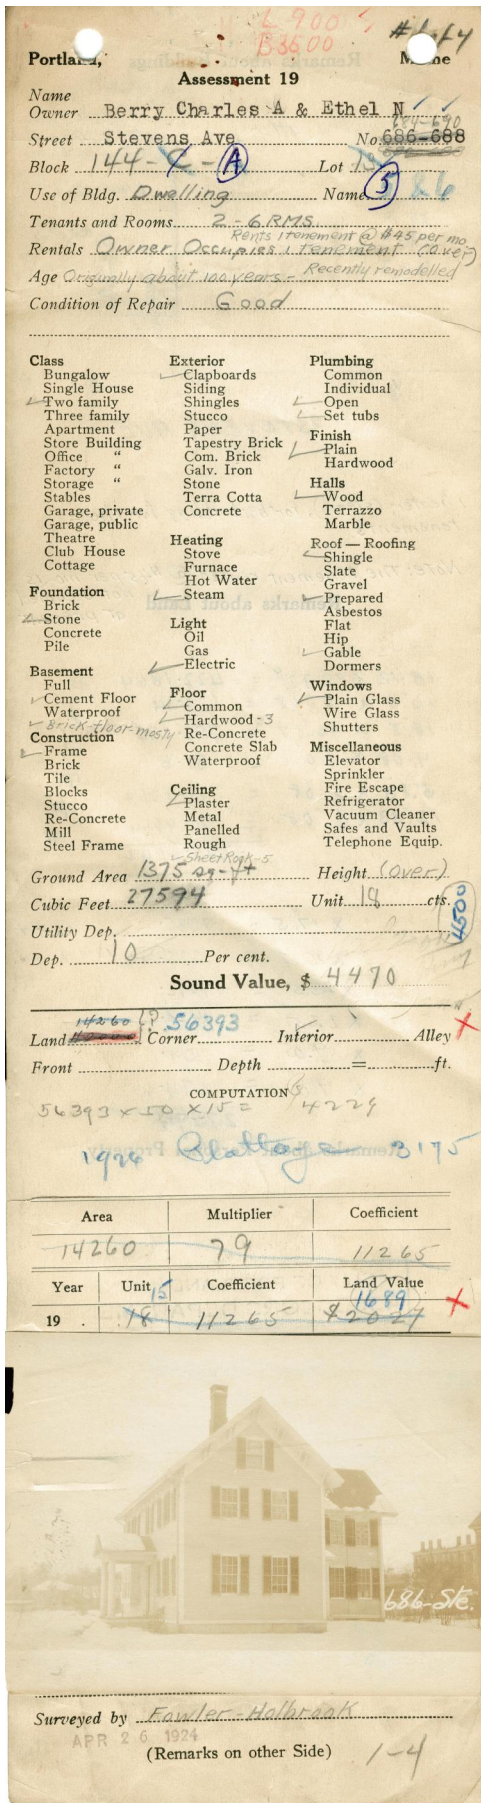 L 900
B 3600
# 1 of 4
Portland, Maine
Assessment 19
Name
Owner Berry Charles A & Ethel N
684-690
Street Stevens Ave No. 686-688
Block 144-C-A Lot 5 & 6
Use of Bldg. Dwelling Name
Tenants and Rooms 2-6 RMS
Rents 1 tenement @ $45 per mo
Rentals Owner Occupies 1 tenement (over)
Age Originally about 100 years - Recently remodelled
Condition of Repair Good
Class
Bungalow
Single House
Two family
Three family
Apartment
Store Building
Office "
Factory "
Storage "
Stables
Garage, private
Garage, public
Theatre
Club House
Cottage
Foundation
Brick
Stone
Concrete
Pile
Basement
Full
Cement Floor
Waterproof
Brick-floor-mostly
Construction
Frame
Brick
Tile
Blocks
Stucco
Re-Concrete
Mill
Steel Frame
Exterior
Clapboards
Siding
Shingles
Stucco
Paper
Tapestry Brick
Com. Brick
Galv. Iron
Stone
Terra Cotta
Concrete
Heating
Stove
Furnace
Hot Water
Steam
Light
Oil
Gas
Electric
Floor
Common
Hardwood - 3
Re-Concrete
Concrete Slab
Waterproof
Ceiling
Plaster
Metal
Panelled
Rough
Sheet Rock-5
Plumbing
Common
Individual
Open
Set tubs
Finish
Plain
Hardwood
Halls
Wood
Terrazzo
Marble
Roof — Roofing
Shingle
Slate
Gravel
Prepared
Asbestos
Flat
Hip
Gable
Dormers
Windows
Plain Glass
Wire Glass
Shutters
Miscellaneous
Elevator
Sprinkler
Fire Escape
Refrigerator
Vacuum Cleaner
Safes and Vaults
Telephone Equip.
Ground Area 1375 sq-ft Height (Over)
Cubic Feet 27594 Unit 18 cts.
4500
Utility Dep.
Dep. 10 Per cent.
Sound Value, $ 4470
14260 ? 56393
Land Corner Interior Alley
Front Depth = ft.
COMPUTATION
56393 x 50 x 15 = 4229
1926 Plattage 3175
Area Multiplier Coefficient
14260 79 11265
Year Unit 15 Coefficient Land Value
1689
19 . 18 11265 $2027
686-Ste.
Surveyed by Fowler-Holbrook
APR 26 1924
(Remarks on other Side) 1-4